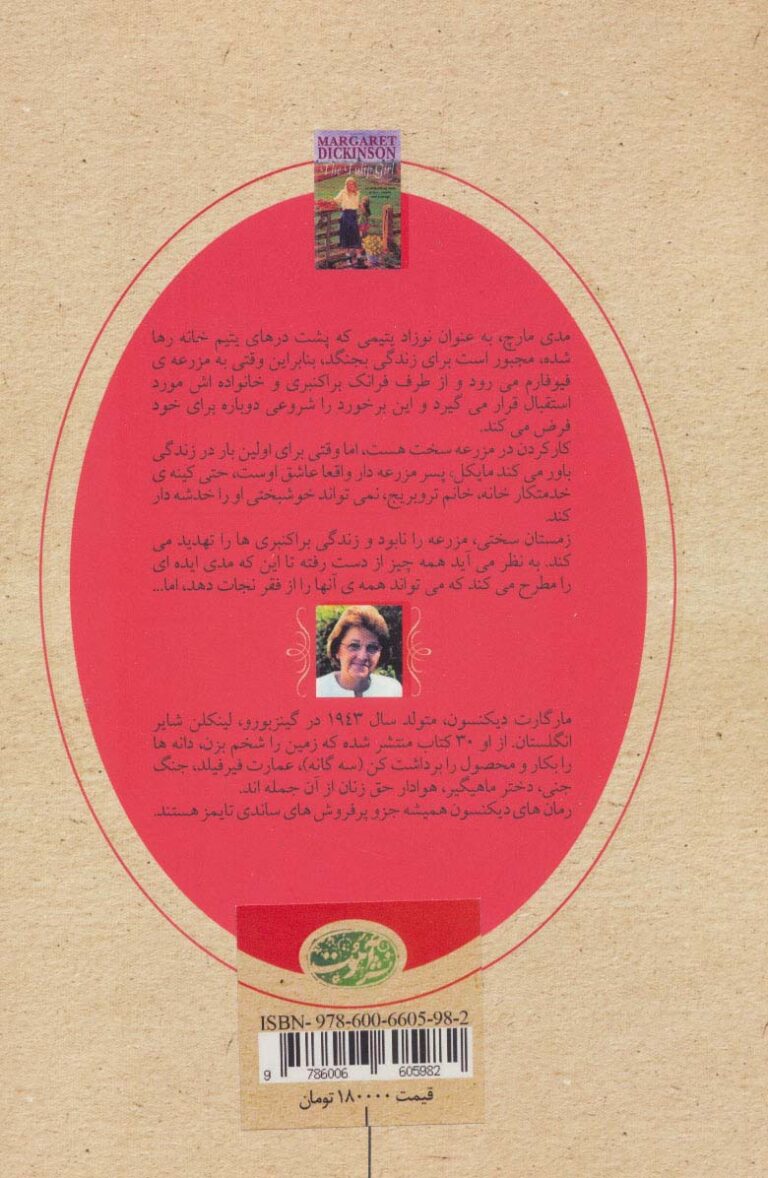 MARGARET
DICKINSON
The Tulip Girl
مدی مارچ، به عنوان نوزاد یتیمی که پشت درهای یتیم خانه رها
شده، مجبور است برای زندگی بجنگد، بنابراین وقتی به مزرعه ی
فیوفارم می رود و از طرف فرانک براکنبری و خانواده اش مورد
استقبال قرار می گیرد و این برخورد را شروعی دوباره برای خود
فرض می کند.
کارکردن در مزرعه سخت هست، اما وقتی برای اولین بار در زندگی
باور می کند مایکل، پسر مزرعه دار واقعا عاشق اوست، حتی کینه ی
خدمتکار خانه، خانم تروبریج، نمی تواند خوشبختی او را خدشه دار
کند.
زمستان سختی، مزرعه را نابود و زندگی براکنبری ها را تهدید می
کند. به نظر می آید همه چیز از دست رفته تا این که مدی ایده ای
را مطرح می کند که می تواند همه ی آنها را از فقر نجات دهد، اما...
مارگارت دیکنسون، متولد سال ۱۹۴۳ در گینزبورو، لینکلن شایر
انگلستان. از او ۳۰ کتاب منتشر شده که زمین را شخم بزن، دانه ها
را بکار و محصول را برداشت کن (سه گانه)، عمارت فیرفیلد، جنگ
جنی، دختر ماهیگیر، هوادار حق زنان از آن جمله اند.
رمان های دیکنسون همیشه جزو پرفروش های ساندی تایمز هستند.
ISBN- 978-600-6605-98-2
9 786006 605982
قیمت ۱۸۰۰۰۰ تومان